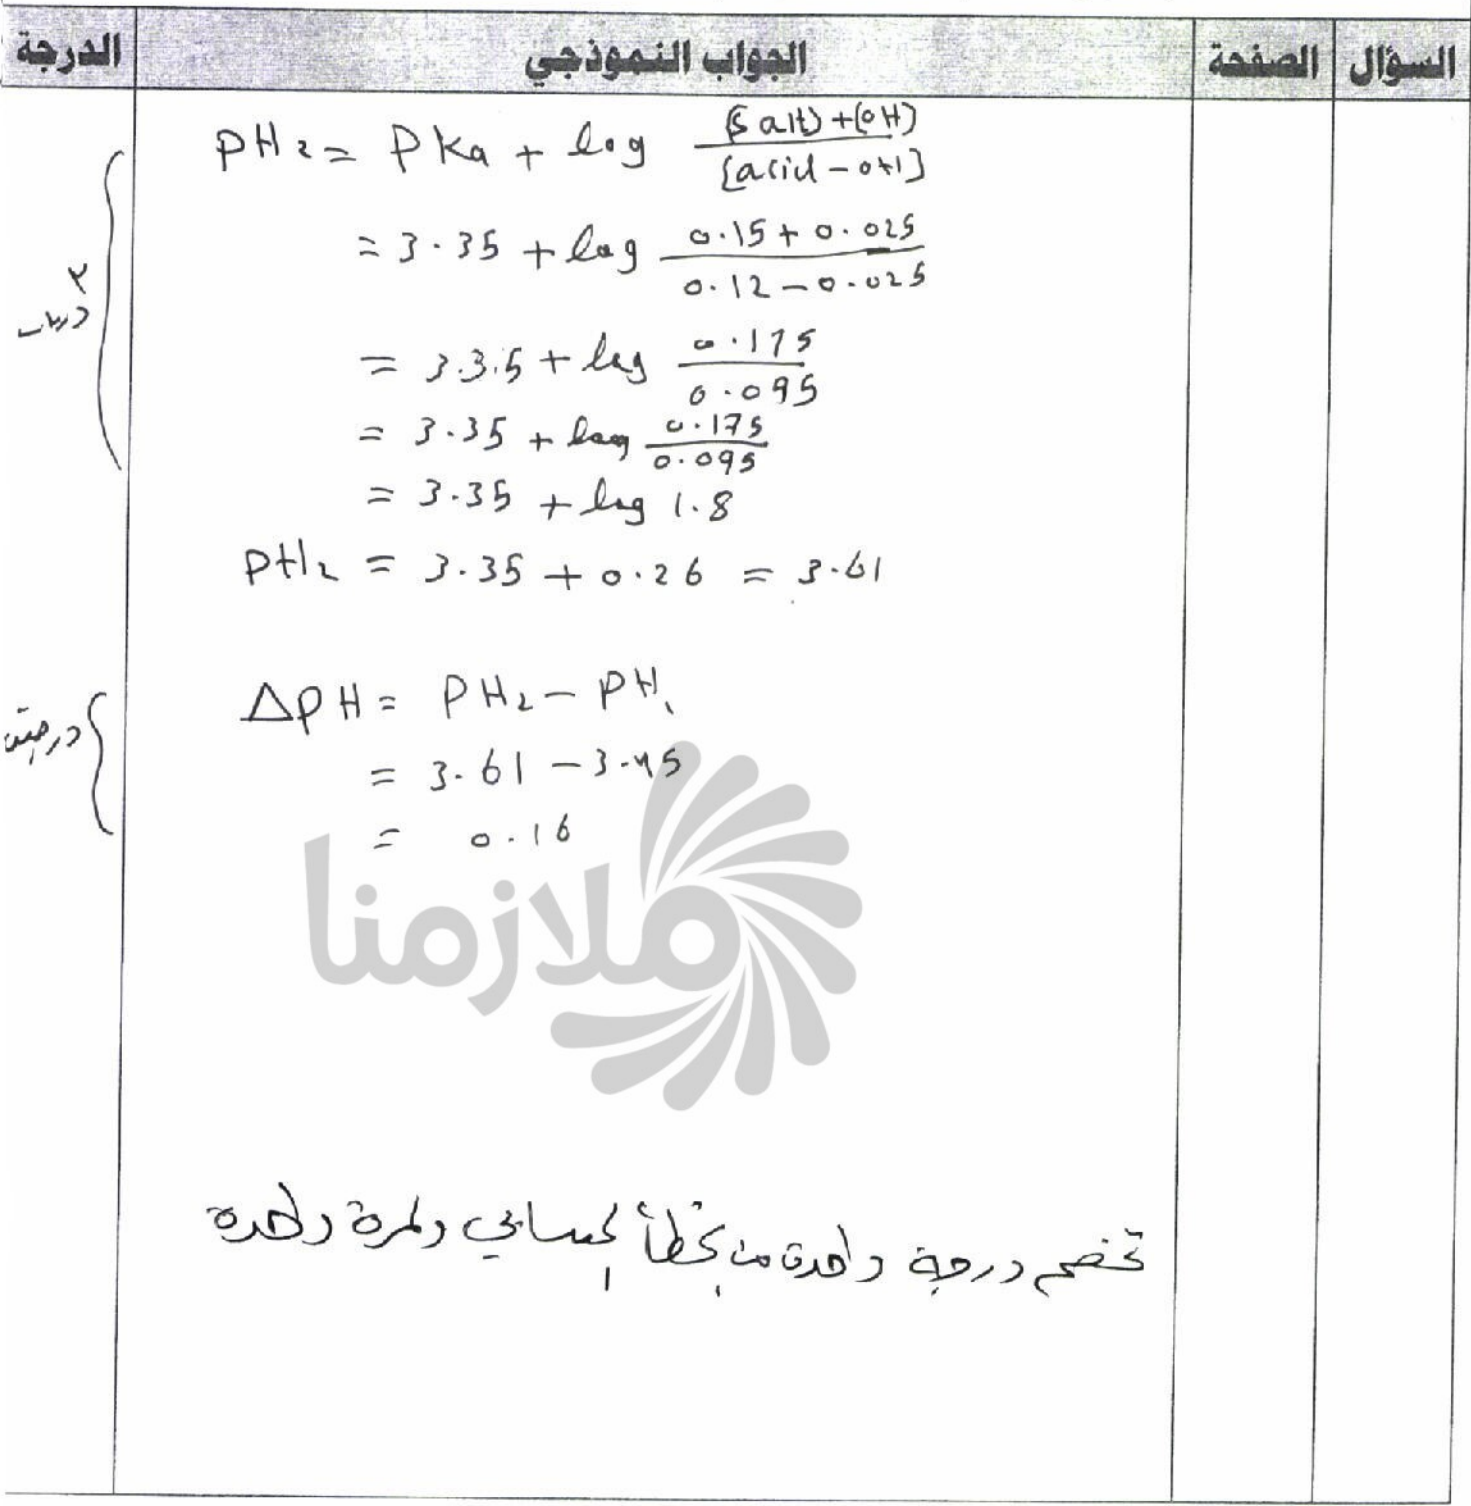 السؤال الصفحة الجواب النموذجي الدرجة
pH2 = Pka + log [salt]+[OH] / [acid - OH]
= 3.35 + log 0.15 + 0.025 / 0.12 - 0.025
٣ درجات
= 3.35 + log 0.175 / 0.095
= 3.35 + log 0.175 / 0.095
= 3.35 + log 1.8
pH2 = 3.35 + 0.26 = 3.61
درجتان
ΔpH = PH2 - PH1
= 3.61 - 3.45
= 0.16
ملازمنا
تخصم درجة واحدة من الخطأ الحسابي ولمرة واحدة